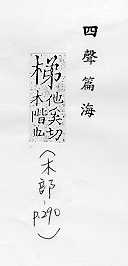 四聲篇海
梯 他奚切
木階也
(木部-
p.290)